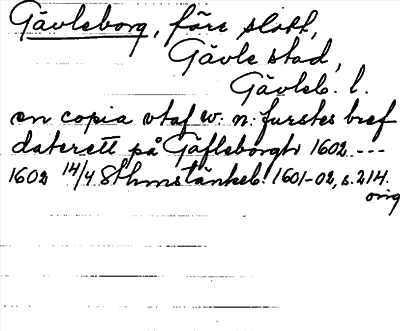 Gävleborg, före slott,
Gävle stad,
Gävleb. l.
en copia vtaf w. n. furstes bref
daterett på Gäfleborgh 1602 ---
1602 14/4 Sthms tänkeb. 1601-02, s. 214.
orig